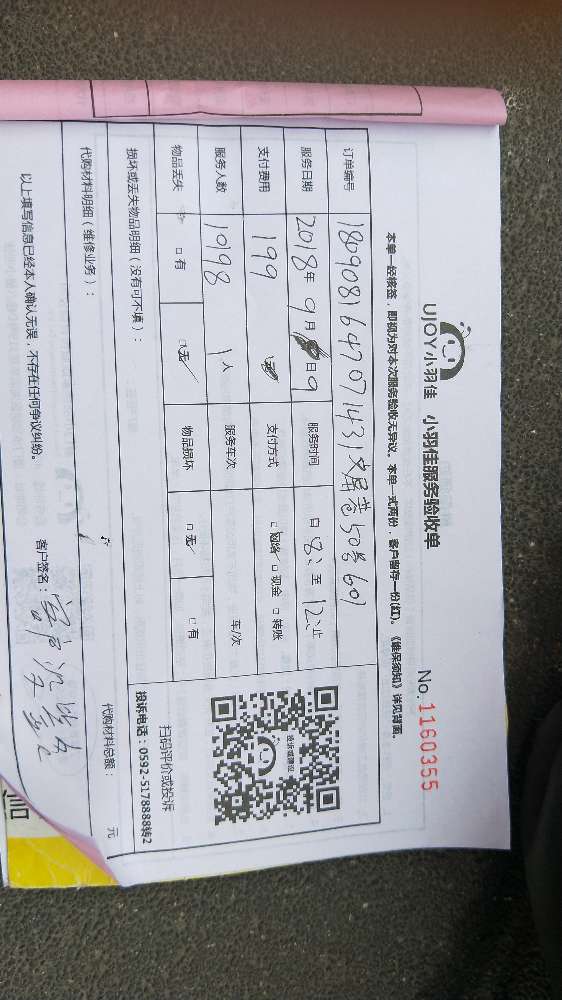 UJOY小羽佳 小羽佳服务验收单
No. 1160355
本单一经核签，即视为对本次服务验收无异议。本单一式两份，客户留存一份(红)。《维保须知》详见背面。
订单编号 180908164707143 50号601
服务日期 2018年 9月 日9 服务时间 自 8: 至 12: 止
支付费用 199 支付方式 □网络 □现金 □转账
服务人数 10198 1人 服务车次 车/次
物品丢失 □有 □无✓ 物品损坏 □无✓ □有
损坏或丢失物品明细（没有可不填）：
代购材料明细（维修业务）： 代购材料总额： 元
以上填写信息已经本人确认无误，不存在任何争议纠纷。 客户签名：
投诉或建议
扫码评价或投诉
投诉电话：0592-5178888转2